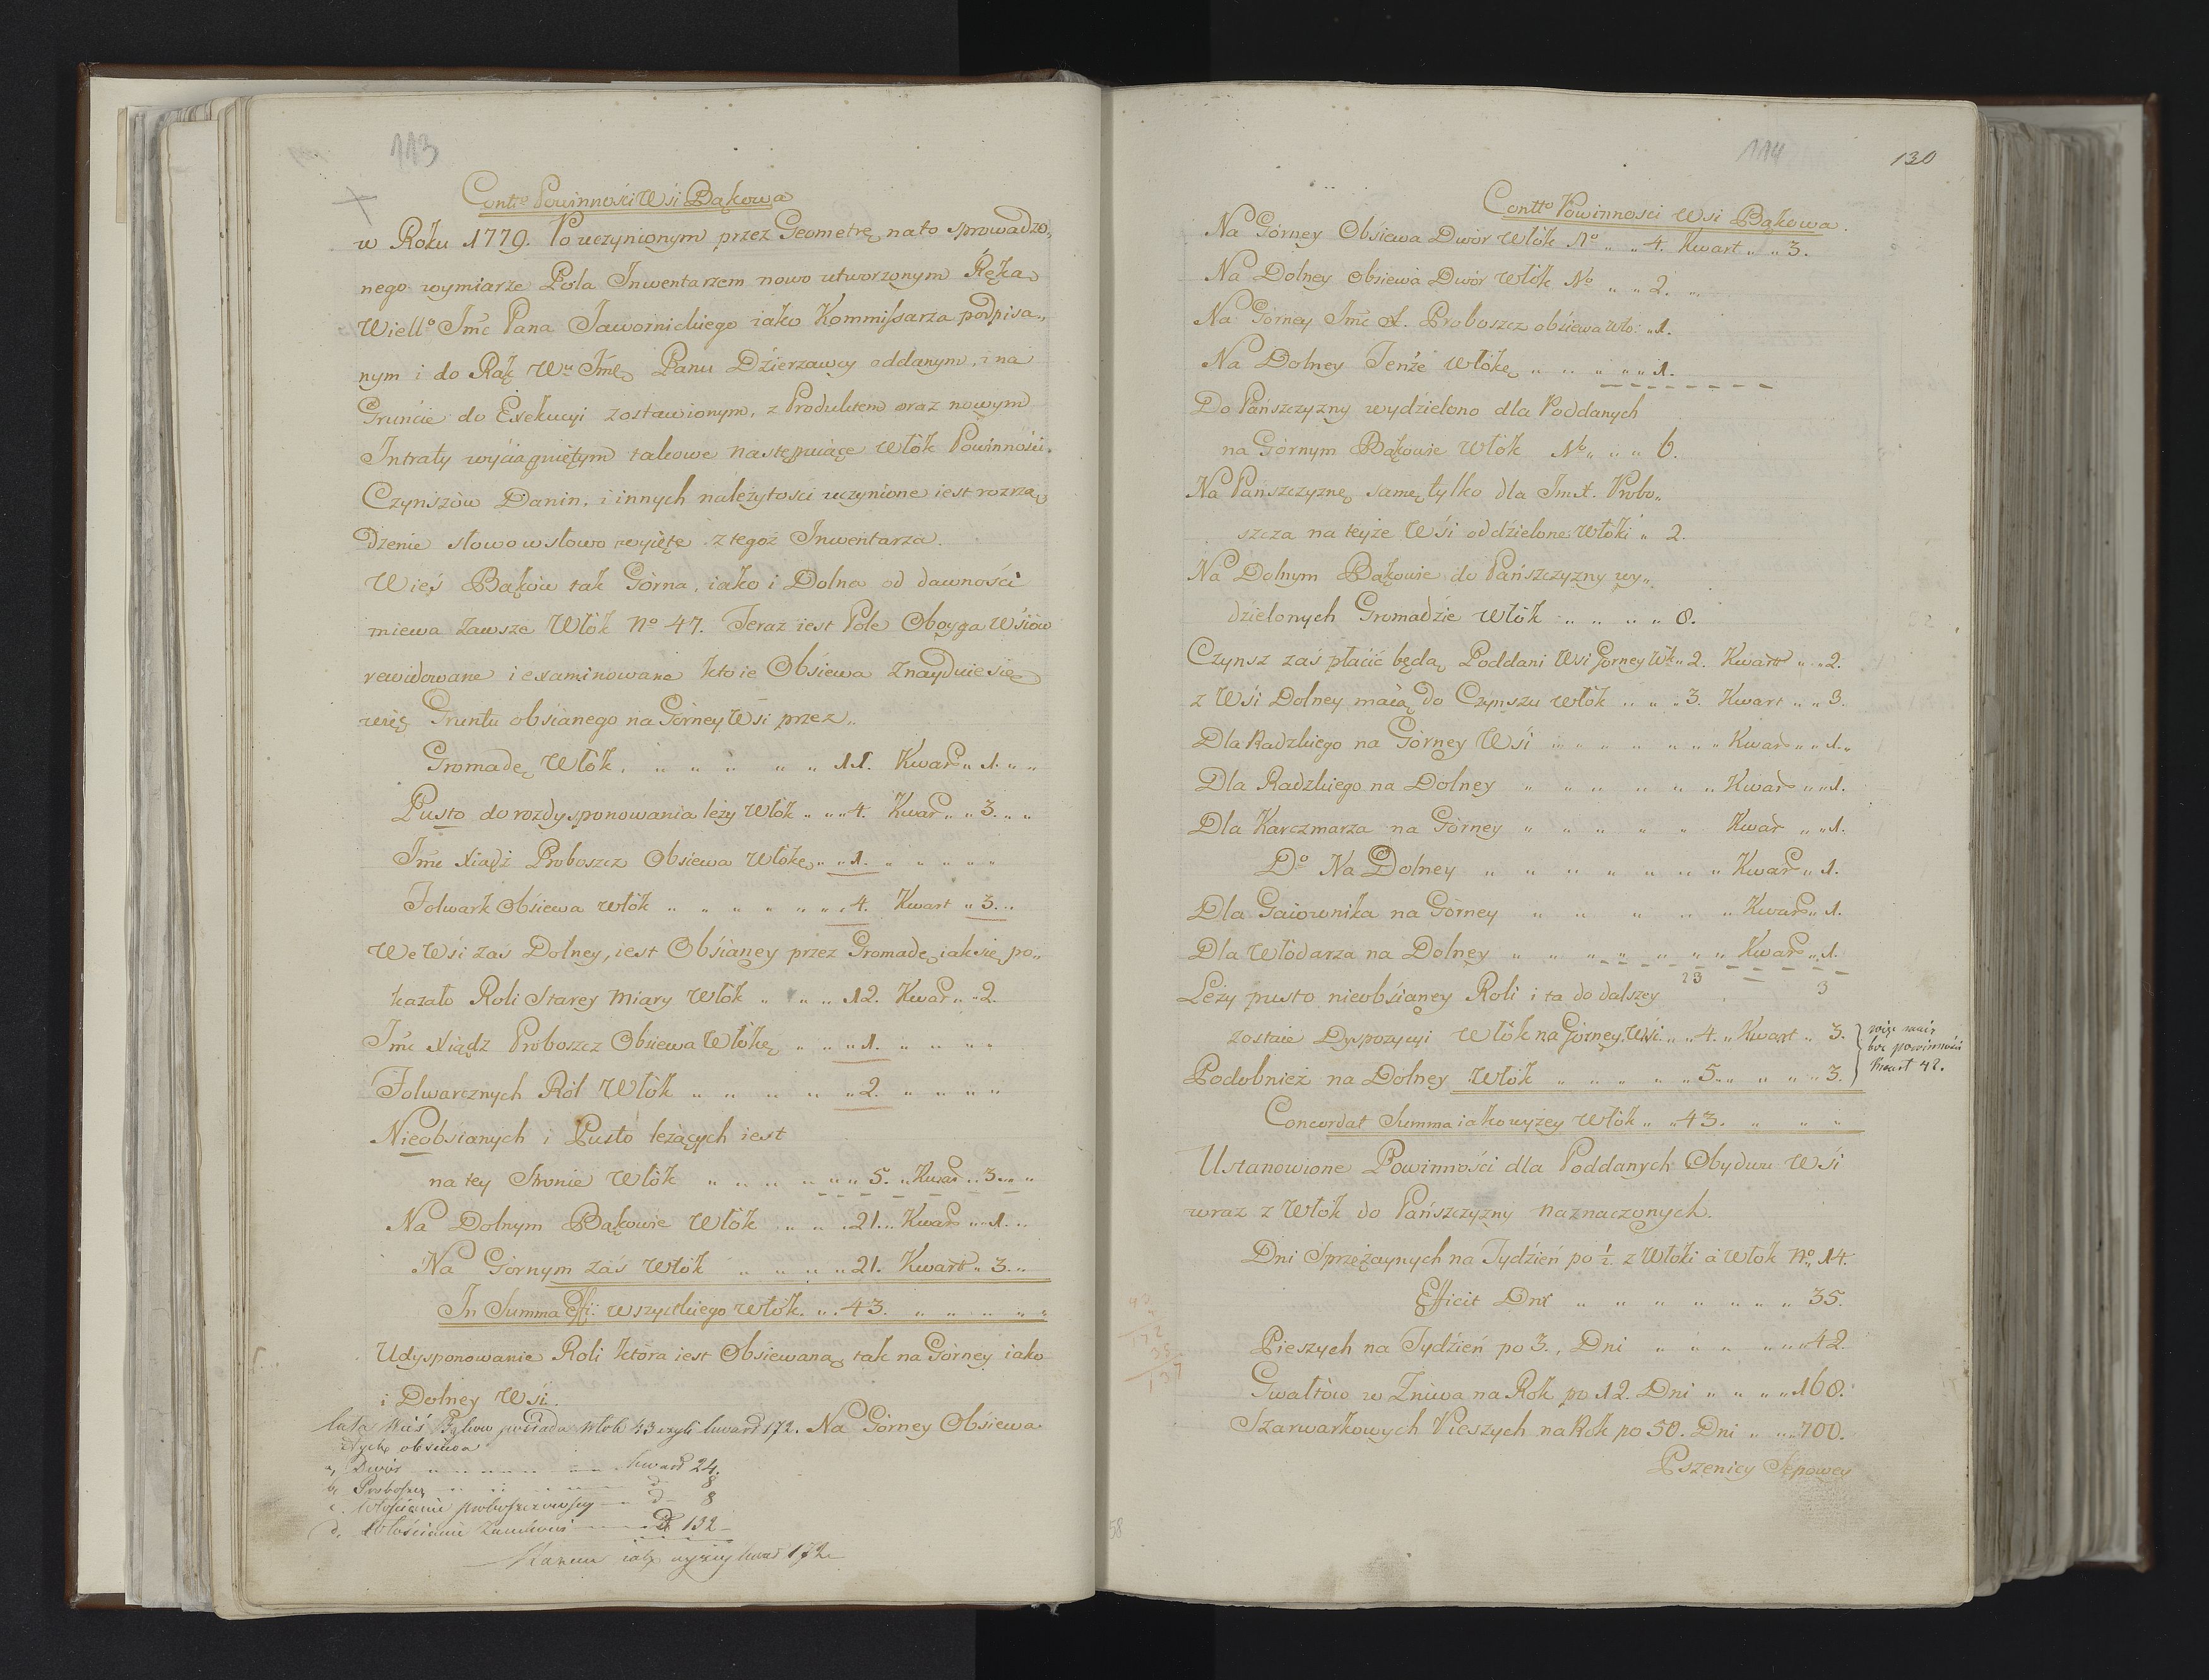 113
Contto Powinności Wśi Bąkowa
w Roku 1779. Po uczynionym przez Geometrę na to sprowadzo„
nego wymiarze Pola Inwentarzem nowo utworzonym Ręką
Wiello Jmć Pana Jawornickiego iako Kommissarza podpisa„
nym i do Rąk Wu Jmć Panu Dźierzawcy oddanym, i na
Gruncie do Exekucyi zostawionym, z Produktem oraz nowym
Intraty wyciągniętym takowe następuiące Włók Powinności.
Czynszów Danin, i innych należytości uczynione iest rozrzą„
dzenie słowo w słowo wyięte z tegoż Inwentarza.
Wieś Bąków tak Górna, iako i Dolna od dawności
miewa zawsze Włók No 47. Teraz iest Pole Oboyga Wśiów
rewidowane i examinowane kto ie Obsiewa znayduie się
więc Gruntu obsianego na Górney Wsi przez„
Gromadę Włók „ „ „ „ „ „ 11. Kwar „ 1. „ „
Pusto do rozdysponowania leży Włók „ „ „ 4. Kwar „ „ 3. „ „
Jmć Xiądz Proboszcz Obsiewa Włókę „ „ 1. „ „ „ „ „
Folwark Obsiewa Włók „ „ „ „ „ „ „ 4. Kwart „ 3. „
We Wśi zaś Dolney, iest Obsianey przez Gromadę iak się po„
kazało Roli Starey Miary Włók „ „ „ 12. Kwar „ „ 2.
Jmć Xiądz Proboszcz Obsiewa Włókę „ „ „ 1. „ „ „ „
Folwarcznych Ról Włók „ „ „ „ „ 2. „ „ „ „
Nieobsianych i Pusto leżących iest
na tey Stronie Włók „ „ „ „ „ „ 5. „ Kwar „ 3. „ „
Na Dolnym Bąkowie Włók „ „ „ 21. „ Kwar „ „ 1. „
Na Górnym zaś Włók „ „ „ „ 21. Kwart „ 3. „
In Summa Effi: wszystkiego Włók „ „ 43. „ „ „ „ „
Udysponowanie Roli która iest Obsiewana tak na Górney iako
i Dolney Wśi.
Na Górney Obsiewa
Cała Wieś Bąkow posiada Włok 43 czyli kwart 172.
z tych obsiewa
a, Dwór „ „ „ „ „ kwart 24.
b, Proboszcz „ „ „ d- 8
c. Włościanie proboszczowscy — d- 8
d. Włościanie — d 132
iak wyżey kwart 172
114
130
Contto Powinnosci Wsi Bąkowa.
Na Górney Obsiewa Dwór Włók No „ „ 4. Kwart „ „ 3.
Na Dolney Obsiewa Dwór Włók No „ „ 2. „
Na Górney Jmć X. Proboszcz obsiewa Wło: „ 1.
Na Dolney Tenże Włókę „ „ „ „ „ 1.
Do Pańszczyzny wydzielono dla Poddanych
na Górnym Bąkowie Włók No „ „ „ 6.
Na Pańszczyznę samę tylko dla Jm X. Probo„
szcza na teyże Wśi oddzielone Włóki „ 2.
Na Dolnym Bąkowie do Pańszczyzny wy„
dzielonych Gromadzie Włók „ „ „ „ 8.
Czynsz zaś płacić będą Poddani Wsi Gorney Wł: „ 2. Kwart „ „ 2.
z Wśi Dolney maią do Czynszu Włók „ „ „ 3. Kwart „ „ 3.
Dla Radzkiego na Górney Wśi „ „ „ „ „ „ „ Kwar „ „ 1. „
Dla Radzkiego na Dolney „ „ „ „ „ „ Kwar „ „ 1.
Dla Karczmarza na Górney „ „ „ „ „ Kwar „ „ 1.
Do Na Dolney „ „ „ „ „ „ „ Kwar „ 1.
Dla Gaiownika na Górney „ „ „ „ „ Kwar „ 1.
Dla Włodarza na Dolney „ „ „ „ „ „ „ Kwar „ 1.
23 3
Leży pusto nieobsianey Roli i ta do dalszey
zostaie Dyspozycyi Włók na Górney Wśi „ „ 4. „ Kwart „ 3.
Podobnież na Dolney Włók „ „ „ „ „ 5. „ „ „ „ 3.
więc
bez powinności
kwart 42.
Concordat Summa iako wyżey Włók „ „ 43. „ „ „
Ustanowione Powinności dla Poddanych Obydwu Wśi
wraz z Włók do Pańszczyzny naznaczonych.
Dni Sprzężaynych na Tydzień po ½. z Włóki a Włók No „ 14.
Efficit Dni „ „ „ „ „ „ „ „ 35.
Pieszych na Tydzień po 3., Dni „ „ „ „ „ „ 42.
Gwałtów w Zniwa na Rok po 12. Dni „ „ „ „ 168.
Szarwarkowych Pieszych na Rok po 50. Dni „ „ „ 700.
Pszenicy Sępowey
58